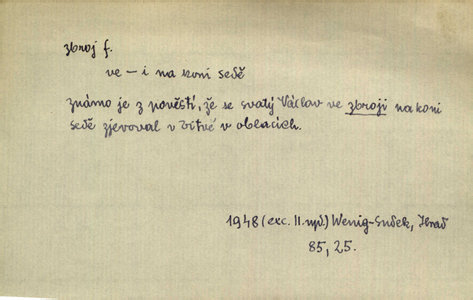 zbroj f.
ve – i na koni sedě
známo je z pověstí, že se svatý Václav ve zbroji na koni
sedě zjevoval v bitvě v oblacích.
1948 (exc. II. vyd.) Wenig-Sudek, Hrad
85, 25.